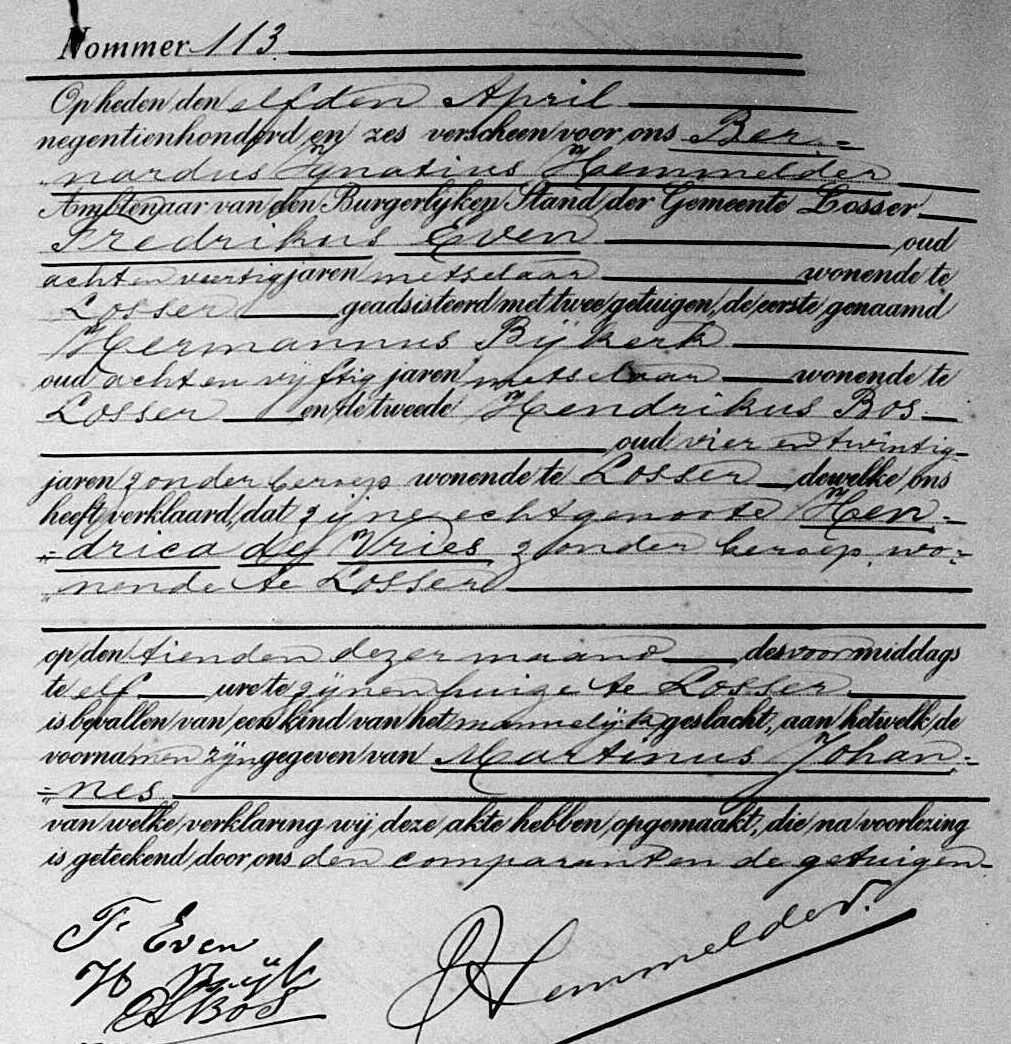 Nommer 113.
Op heden den elfden April
negentienhonderd en zes verscheen voor ons Ber-
nardus Ignatius Hemmelder
Ambtenaar van den Burgerlyken Stand der Gemeente Losser
Fredrikus Even oud
acht en veertig jaren metselaar wonende te
Losser geadsisteerd met twee getuigen, de eerste genaamd
Hermannus Bijkerk
oud acht en vijftig jaren metselaar wonende te
Losser en de tweede Hendrikus Bos
oud vier en twintig
jaren zonder beroep wonende te Losser dewelke ons
heeft verklaard, dat zijne echtgenoote Hen-
drica de Vries zonder beroep, wo-
nende te Losser
op den tienden dezer maand des voormiddags
te elf ure te zijnen huize te Losser
is bevallen van een kind van het mannelijk geslacht, aan hetwelk de
voornamen zijn gegeven van Martinus Johan-
nes
van welke verklaring wij deze akte hebben opgemaakt, die na voorlezing
is geteekend door ons den comparant en de getuigen.
F. Even
Hemmelder.
H
HBos